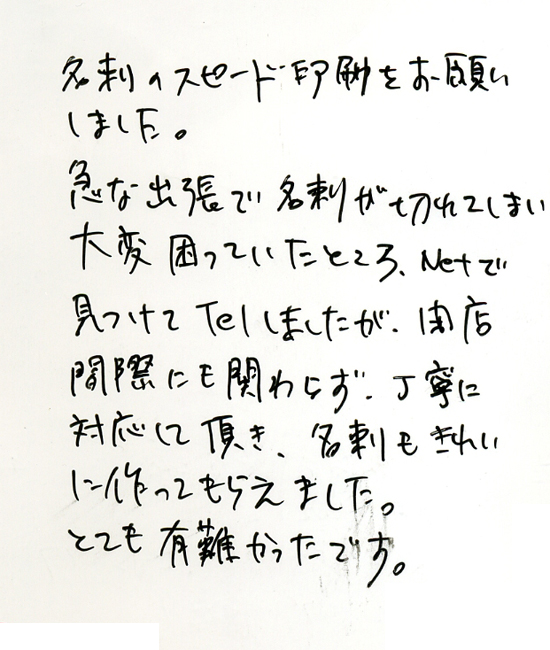 名刺のスピード印刷をお願い
しました。
急な出張で名刺が切れてしまい
大変困っていたところ、Netで
見つけてTelしましたが、閉店
間際にも関わらず、丁寧に
対応して頂き、名刺もきれい
に作ってもらえました。
とても有難かったです。